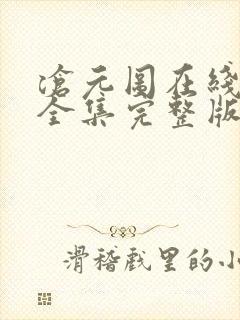 滄元图在线
全集完整版
滑稽戏里的小